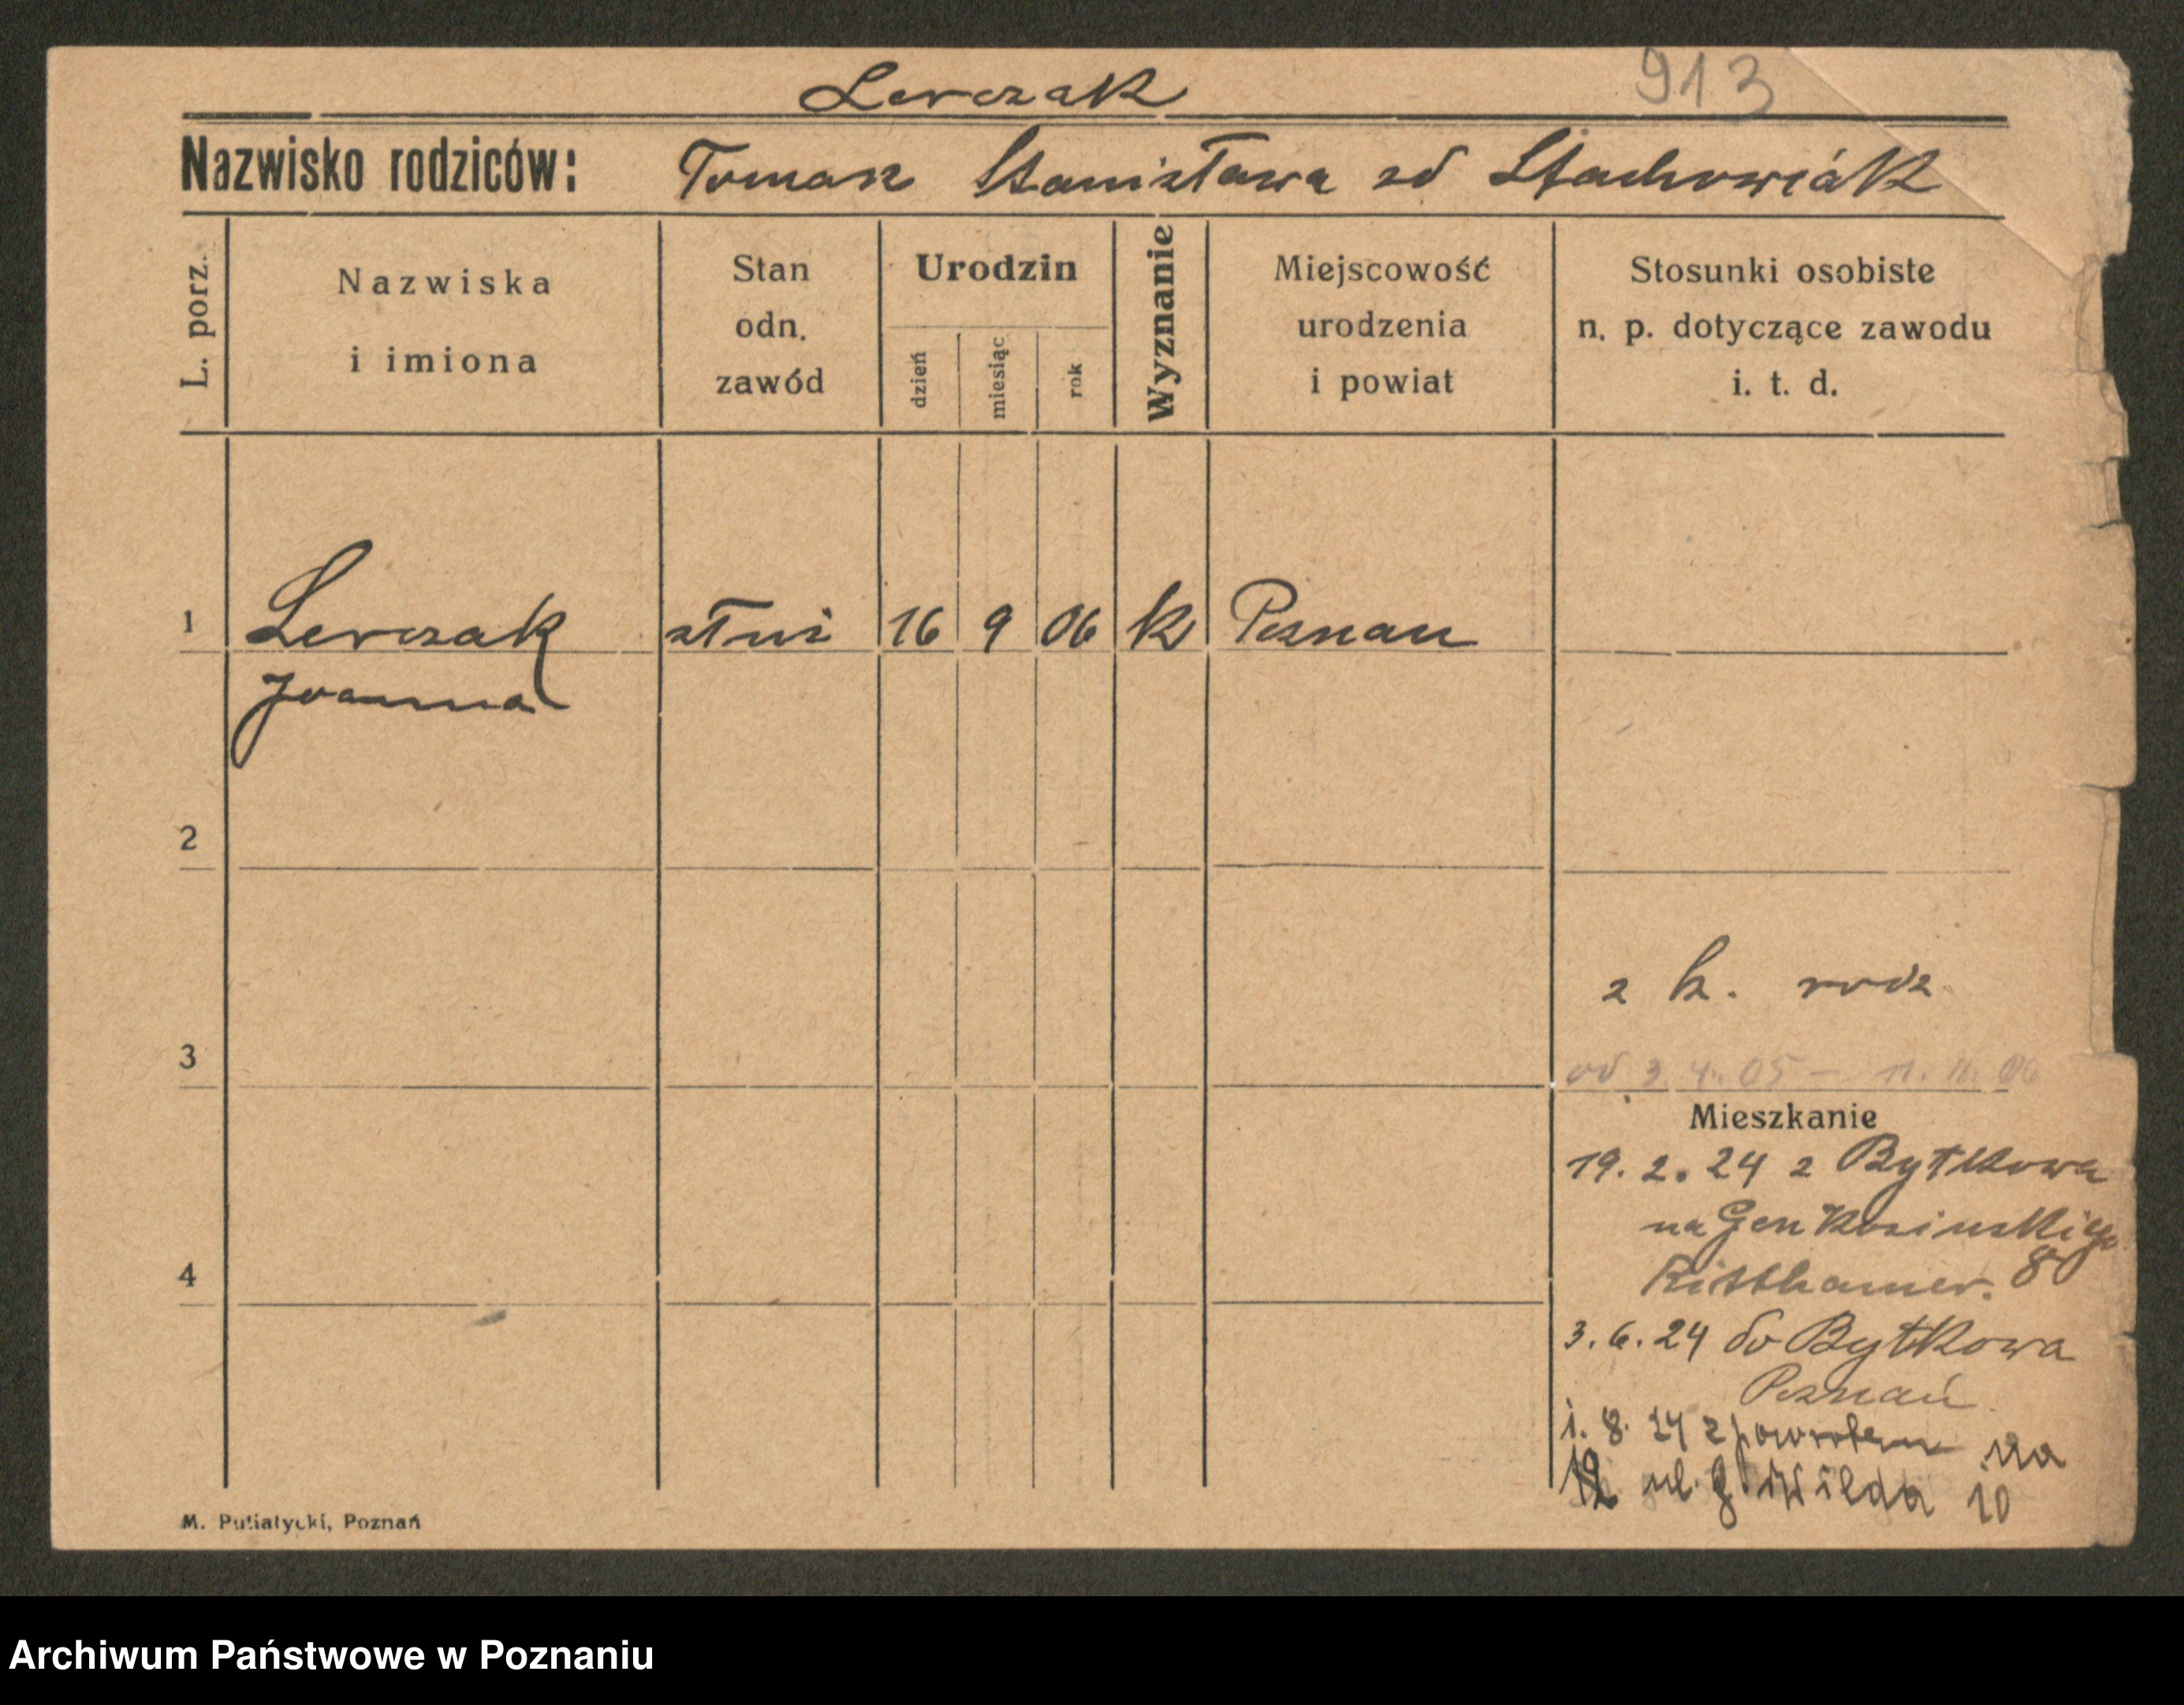 Lerczak 913
Nazwisko rodziców: Tomasz Stanisława zd Stachowiak
L. porz.
Nazwiska
i imiona
Stan
odn.
zawód
Urodzin
dzień
miesiąc
rok
Wyznanie
Miejscowość
urodzenia
i powiat
Stosunki osobiste
n. p. dotyczące zawodu
i. t. d.
1 Lerczak służ 16 9 06 k Poznan
Joanna
2
z k. rodz
3 od 3.4.05 – 11.11.06
Mieszkanie
19.2.24 z Bytkowa
na Gen Kosinskiego
8
4
3.6.24 do Bytkowa
Poznań
1.8.24 z powrotem na
12 ul. g. Wilda 10
M. Putiatycki, Poznań
Archiwum Państwowe w Poznaniu